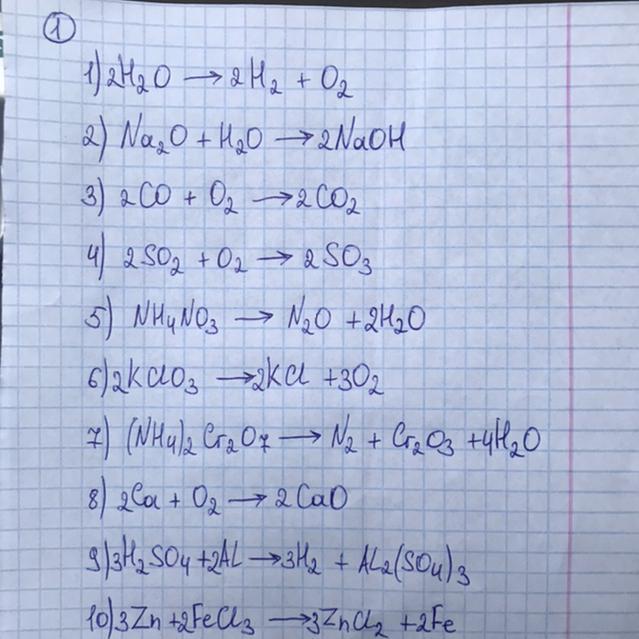 1
1) 2H₂O → 2H₂ + O₂
2) Na₂O + H₂O → 2NaOH
3) 2CO + O₂ → 2CO₂
4) 2SO₂ + O₂ → 2SO₃
5) NH₄NO₃ → N₂O + 2H₂O
6) 2KClO₃ → 2KCl + 3O₂
7) (NH₄)₂Cr₂O₇ → N₂ + Cr₂O₃ + 4H₂O
8) 2Ca + O₂ → 2CaO
9) 3H₂SO₄ + 2AL → 3H₂ + AL₂(SO₄)₃
10) 3Zn + 2FeCl₃ → 3ZnCl₂ + 2Fe